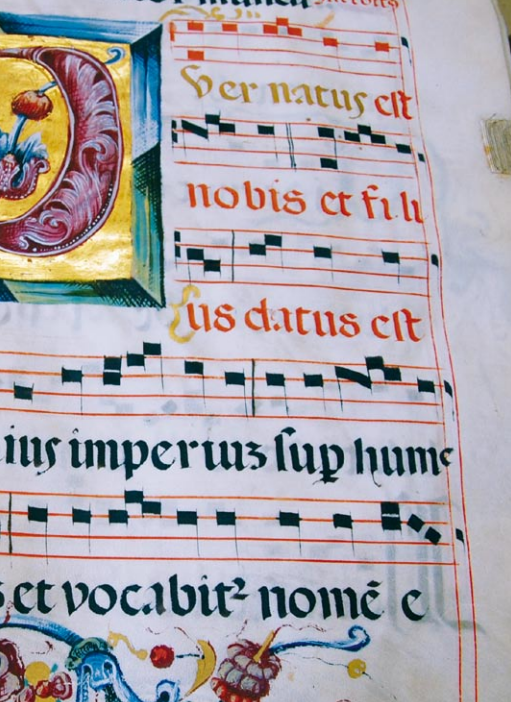 Ver natus est
nobis et fi li
us datus est
ius imperiuz suꝑ hume
s et vocabit² nomē e